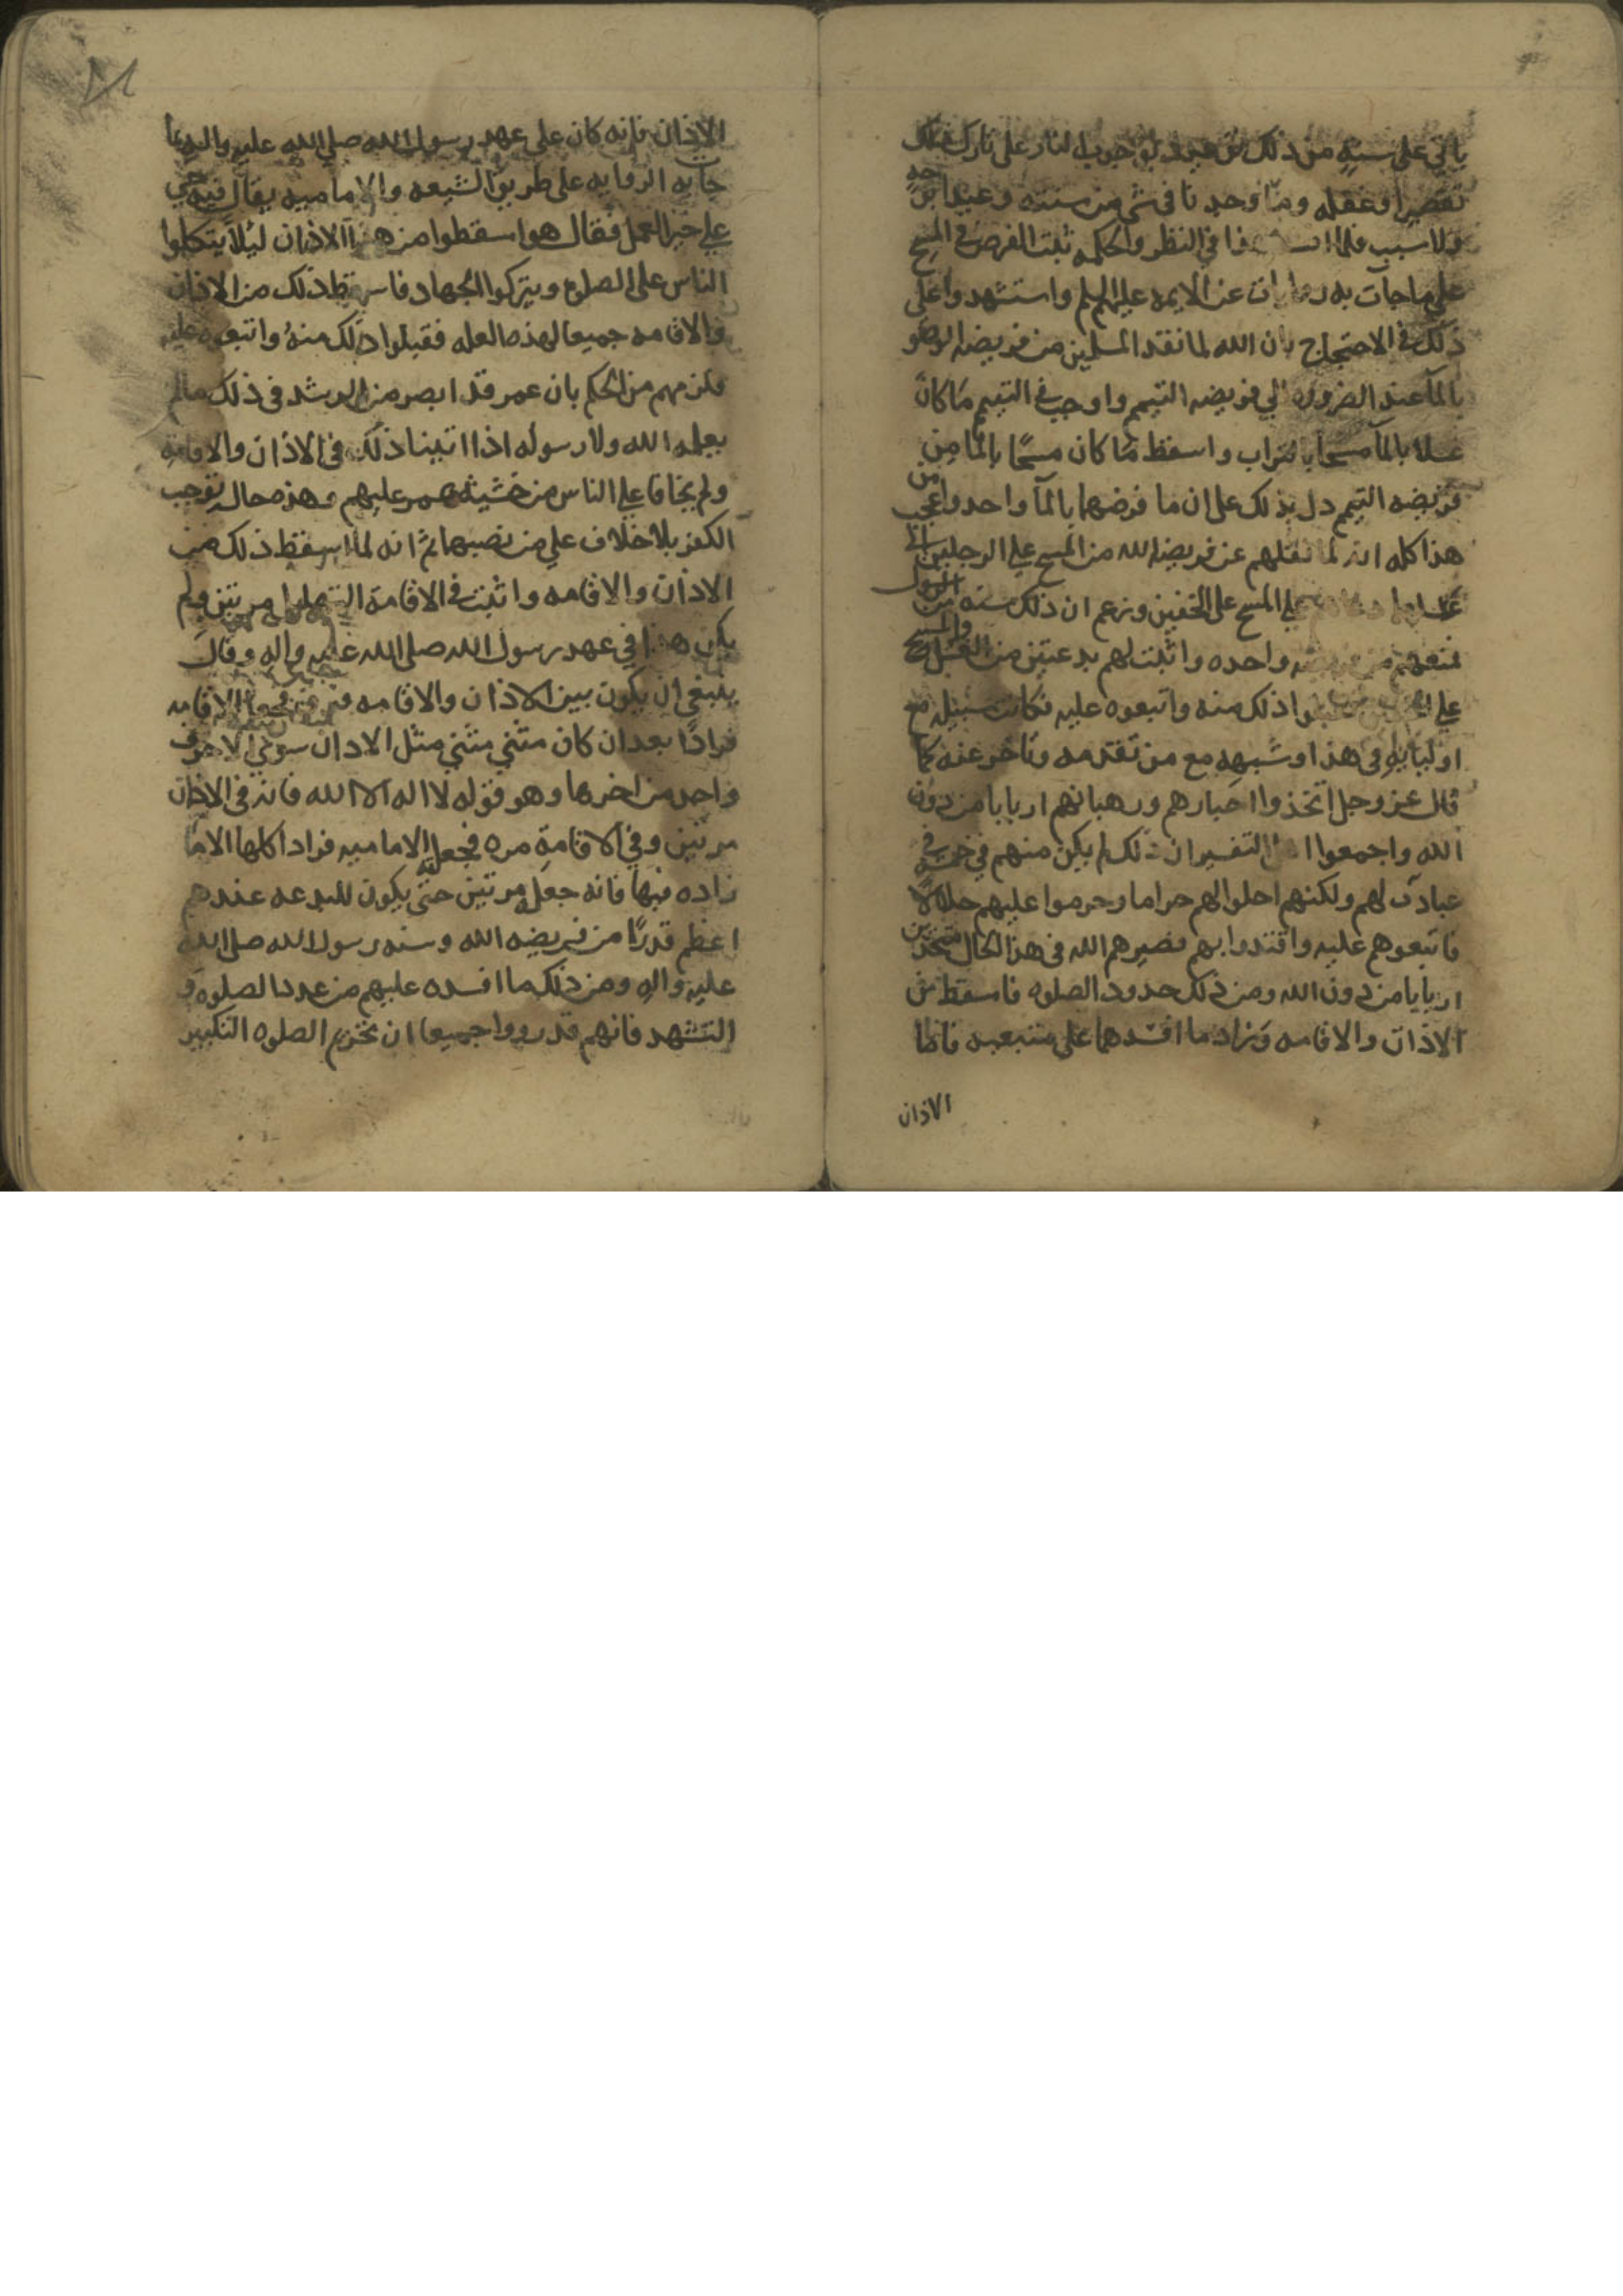 ياتي على سنته من ذلك لوجوب النار على تارك ذلك
تقصيرا وغفله وما وجدنا في شي من سنته وعيدا من جهة
ولا سبب فلما في النظر والحكمه ثبت الفرض في المسح
على ما جآت به عن الايمه عليهم السلم واستشهدوا على
ذلك في الاحتجاج بان الله لما نقد المسلمين من فريضه الوضو
بالمآ عند الضروره الي فريضه التيمم واوجب في التيمم ما كان
غسلا بالمآ مسحا بالتراب واسقط ما كان مسحًا بالمآ من
فريضه التيمم دل بذلك على ان ما فرضهما بالمآ واحد واعجب من
هذا كله انه لما نقلهم عن فريضه الله من المسح علي الرجلين الي
علي المسح على الخفين وزعم ان ذلك سنه من الرسول
فمنعهم من واحده واثبت لهم بدعتين من الغسل والمسح
علي ذلك منه واتبعوه عليه فكانت سبيله مع
اوليايه في هذا وشبهه مع من تقدمه وتاخر عنه كما
قال عز وجل اتخذوا احبارهم ورهبانهم اربابا من دون
الله واجمعوا التفسير ان ذلك لم يكن منهم في
عبادت لهم ولكنهم احلوا لهم حراما وحرموا عليهم حلالا
فاتبعوهم عليه واقتدوا بهم فصيرهم الله في هذا الحال متخذين
اربابا من دون الله ومن ذلك حدود الصلوه فاسقط من
الاذان والاقامه وزاد ما افسدهما على متبعيه فاما
الاذان
الاذان فانه كان على عهد رسول الله صلى الله عليه واله بما
جات به الروايه على طريق الشيعه والاماميه يقال فيه حي
علي خير العمل فقال هو اسقطوا من هذا الاذان ليلا يتكلوا
الناس على الصلوه ويتركوا الجهاد فاسقط ذلك من الاذان
والاقامه جميعا لهذه العله فقبلوا ذلك منه واتبعوه عليه
فلزمهم من الحكم بان عمر قد ابصر من الرشد في ذلك ما لم
يعلمه الله ولا رسوله اذا اثبتا ذلك في الاذان والاقامه
ولم يخافا علي الناس من خشيه عمر عليهم وهذه حال توجب
الكفر بلا خلاف علي من نصبها ثم انه لما اسقط ذلك من
الاذان والاقامه واثبت في الاقامه مرتين ولم
يكن هذا في عهد رسول الله صلى الله عليه واله وقال
ينبغي ان يكون بين الاذان والاقامه فرق فجعل الاقامه
فرادًا بعد ان كان مثني مثني مثل الاذان سوي الا حرف
واحد من اخرها وهو قوله لا اله الا الله فانه في الاذان
مرتين وفي الاقامه مره فجعل الاماميه فرادا كلها الا ما
زاده فيها فانه جعله مرتين حتى يكون للبدعه عندهم
اعظم قدرًا من فريضه الله وسنه رسول الله صلى الله
عليه واله ومن ذلك ما افسده عليهم من عدد الصلوه و
التشهد فانهم قد رووا جميعا ان تحريم الصلوه التكبير